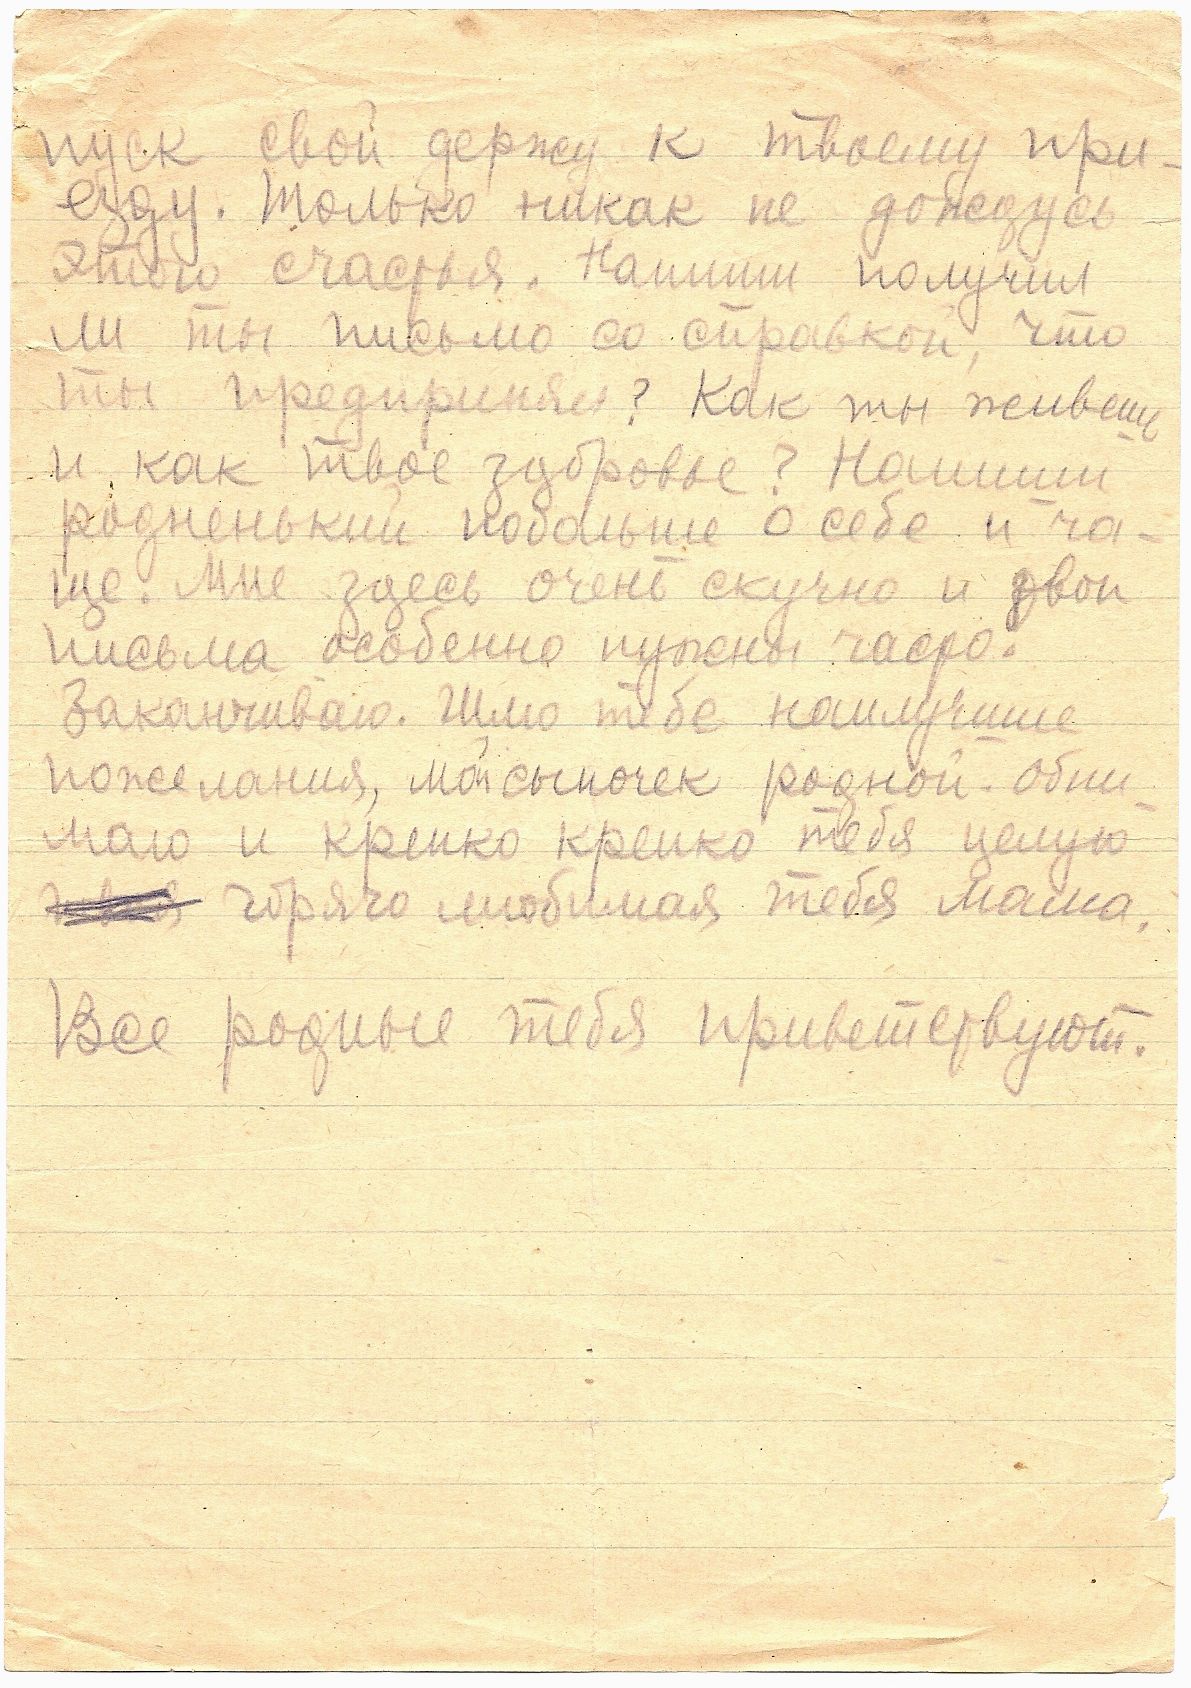 пуск свой держу к твоему при-
езду. Только никак не дождусь
этого счастья. Напиши получил
ли ты письмо со справкой, что
ты предпринял? Как ты живешь
и как твое здоровье? Напиши
родненький побольше о себе и ча-
ще. Мне здесь очень скучно и твои
письма особенно нужны часто.
Заканчиваю. Шлю тебе наилучшие
пожелания, мой сыночек родной. Обни-
маю и крепко крепко тебя целую
горячо любимая тебя мама.
Все родные тебя приветствуют.